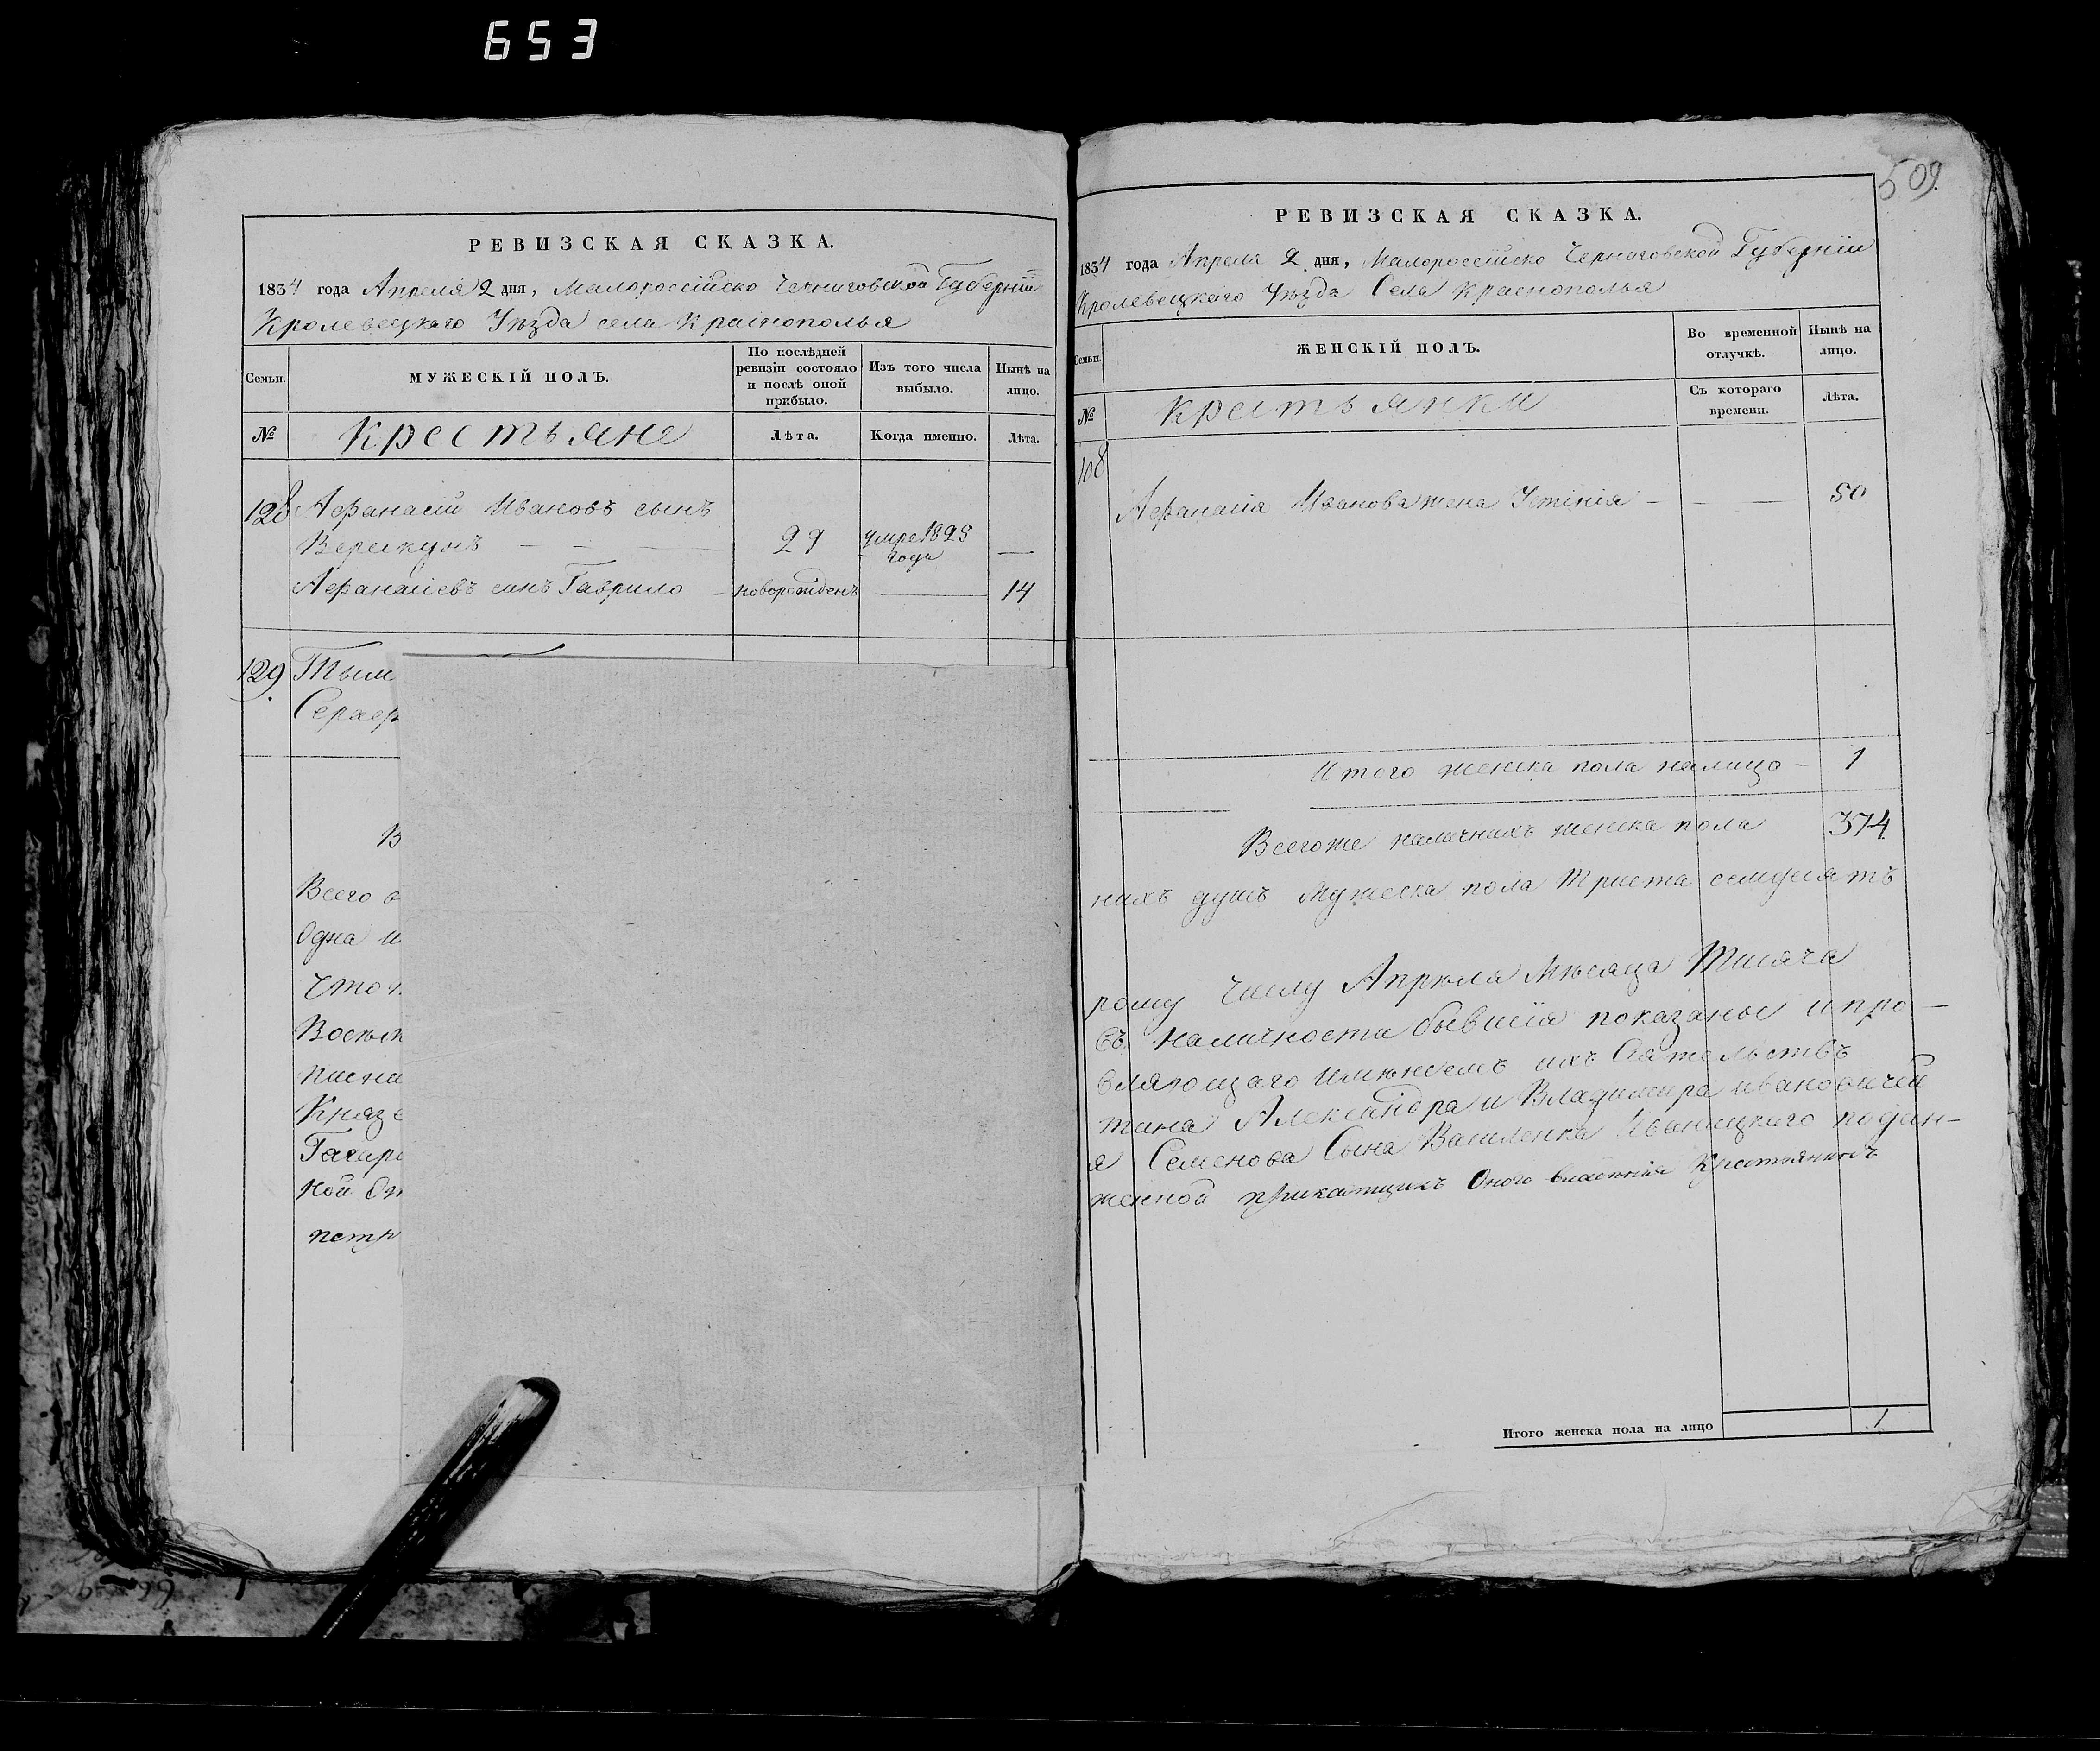 653
РЕВИЗСКАЯ СКАЗКА.
1834 года Апреля 2 дня, Малороссійско Черниговской Губерніи
Кролевецкаго Уѣзда села Краснополья
Семьи.
МУЖЕСКІЙ ПОЛЪ.
По послѣдней ревизіи состояло и послѣ оной прибыло.
Изъ того числа выбыло.
Нынѣ на лицо.
№
крестьяне
Лѣта.
Когда именно.
Лѣта.
128 Афанасій Ивановъ сынъ
29 умре 1825 года —
Афанасіевъ синъ Гаврило — новорожденъ — 14
129 Тым
В
Всего
Одна и
Что
Восьм
писна
Князе
Гагар
ной
петр
509.
РЕВИЗСКАЯ СКАЗКА.
1834 года Апреля 2 дня, Малороссійско Черниговской Губерніи
Кролевецкаго Уѣзда Села Краснополья
Семьи.
ЖЕНСКІЙ ПОЛЪ.
Во временной отлучкѣ.
Нынѣ на лицо.
№
крестьянки
Съ котораго времени.
Лѣта.
Афанасія Иванова жена Устінія — — — 50
Итого женска пола налицо — 1
Всегоже наличнихъ женска пола 374
нихъ душъ мужеска пола триста семдесятъ
рому числу Апрѣля мѣсяца тисяча
съ наличности бывшія показаны и про—
вляющаго имѣніемъ ихъ Сіятельствъ
тина Александра и Владимира Ивановичей
я Семенова Сына Василенка Иваницкаго подан—
женной прикащикъ Оного владѣнія Крестянинъ
Итого женска пола на лицо 1